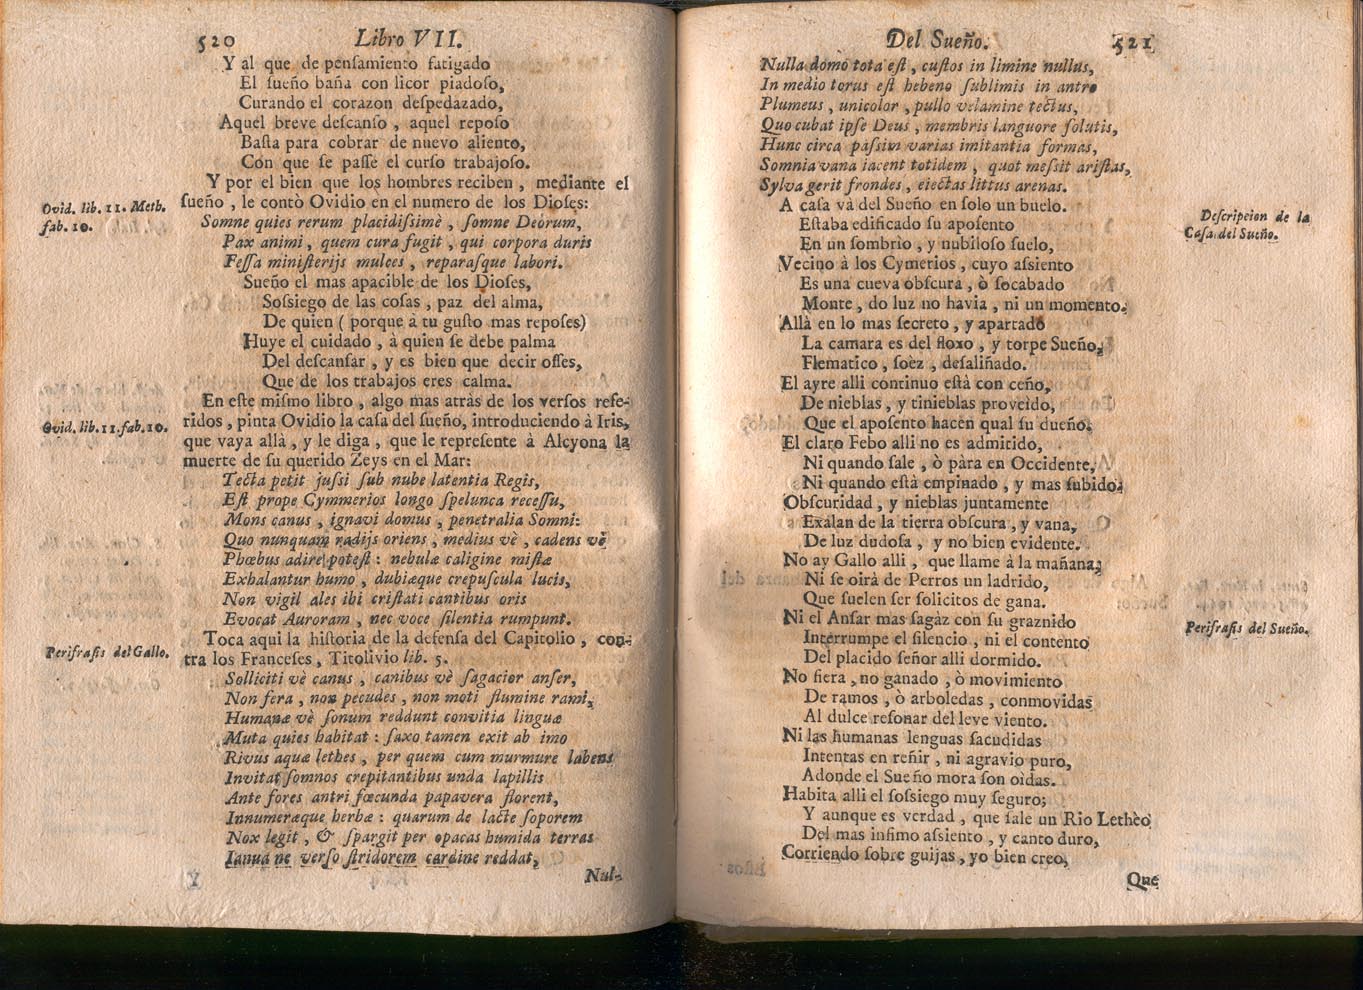 520 Libro VII.
Y al que de pensamiento fatigado
El ſueño baña con licor piadoſo,
Curando el corazon deſpedazado,
Aquel breve deſcanſo, aquel repoſo
Baſta para cobrar de nuevo aliento,
Con que ſe paſſe el curſo trabajoſo.
Y por el bien que los hombres reciben, mediante el
ſueño, le contò Ovidio en el numero de los Dioſes:
Ovid. lib. 11. Meth.
fab. 10.
Somne quies rerum placidiſsimè, ſomne Deorum,
Pax animi, quem cura fugit, qui corpora duris
Feſſa miniſterijs mulces, reparaſque labori.
Sueño el mas apacible de los Dioſes,
Soſsiego de las coſas, paz del alma,
De quien (porque à tu guſto mas repoſes)
Huye el cuidado, à quien ſe debe palma
Del deſcanſar, y es bien que decir oſſes,
Que de los trabajos eres calma.
En eſte miſmo libro, algo mas atràs de los verſos refe-
ridos, pinta Ovidio la caſa del ſueño, introduciendo à Iris,
Ovid. lib. 11. fab. 10.
que vaya allà, y le diga, que le repreſente à Alcyona la
muerte de ſu querido Zeys en el Mar:
Tecta petit juſſi ſub nube latentia Regis,
Eſt prope Cymmerios longo ſpelunca receſſu,
Mons canus, ignavi domus, penetralia Somni:
Quo nunquam radijs oriens, medius vè, cadens vè
Phœbus adire poteſt: nebulæ caligine miſtæ
Exhalantur humo, dubiæque crepuſcula lucis,
Non vigil ales ibi criſtati cantibus oris
Evocat Auroram, nec voce ſilentia rumpunt.
Toca aqui la hiſtoria de la defenſa del Capitolio, con-
tra los Franceſes, Titolivio lib. 5.
Periſraſis del Gallo.
Solliciti vè canus, canibus vè ſagacior anſer,
Non fera, non pecudes, non moti flumine rami,
Humanæ vè ſonum reddunt convitia linguæ
Muta quies habitat: ſaxo tamen exit ab imo
Rivus aquæ lethes, per quem cum murmure labens
Invitat ſomnos crepitantibus unda lapillis
Ante fores antri fœcunda papavera florent,
Innumeræque herbæ: quarum de lacte ſoporem
Nox legit, & ſpargit per opacas humida terras
Ianua ne verſo ſtridorem cardine reddat,
Y Nul-
Del Sueño. 521
Nulla domo tota eſt, cuſtos in limine nullus,
In medio torus eſt hebeno ſublimis in antro
Plumeus, unicolor, pullo velamine tectus,
Quo cubat ipſe Deus, membris languore ſolutis,
Hunc circa paſsim varias imitantia formas,
Somnia vana iacent totidem, quot meſsit ariſtas,
Sylva gerit frondes, eiectas littus arenas.
A caſa và del Sueño en ſolo un buelo.
Deſcripcion de la
Caſa del Sueño.
Eſtaba edificado ſu apoſento
En un ſombrio, y nubiloſo ſuelo,
Vecino à los Cymerios, cuyo aſsiento
Es una cueva obſcura, ò ſocabado
Monte, do luz no havia, ni un momento.
Allà en lo mas ſecreto, y apartado
La camara es del floxo, y torpe Sueño,
Flematico, ſoèz, deſaliñado.
El ayre alli continuo eſtà con ceño,
De nieblas, y tinieblas proveìdo,
Que el apoſento hacen qual ſu dueño.
El claro Febo alli no es admitido,
Ni quando ſale, ò pàra en Occidente,
Ni quando eſtà empinado, y mas ſubido.
Obſcuridad, y nieblas juntamente
Exalan de la tierra obſcura, y vana,
De luz dudoſa, y no bien evidente.
No ay Gallo alli, que llame à la mañana,
Ni ſe oirà de Perros un ladrido,
Que ſuelen ſer ſolicitos de gana.
Ni el Anſar mas ſagàz con ſu graznido
Periſraſis del Sueño.
Interrumpe el ſilencio, ni el contento
Del placido ſeñor alli dormido.
No fiera, no ganado, ò movimiento
De ramos, ò arboledas, conmovidas
Al dulce reſonar del leve viento.
Ni las humanas lenguas ſacudidas
Intentas en reñir, ni agravio puro,
Adonde el Sueño mora ſon oìdas.
Habita alli el ſoſsiego muy ſeguro;
Y aunque es verdad, que ſale un Rio Lethèo
Del mas infimo aſsiento, y canto duro,
Corriendo ſobre guijas, yo bien creo,
Que